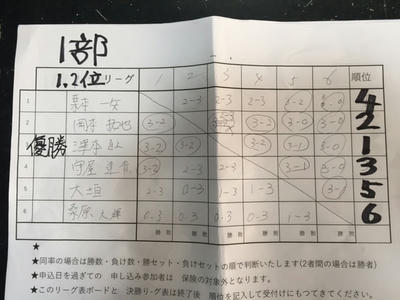 1部
1,2位 リーグ 1 2 3 4 5 6 順位
1 栗本 一矢 2-3 2-3 2-3 3-2 3-0 4
2 岡本 拓也 3-2 3-2 3-0 3-0 2
優勝 3-2 3-2 3-2 3-1 3-0 1
4 守屋 2-3 2-3 3-1 3-0 3
5 大垣 2-3 0-3 1-3 1-3 3-1 5
6 桑原 大輝 0-3 0-3 0-3 0-3 1-3 6
勝 敗 勝 敗 勝 敗 勝 敗 勝 敗 勝 敗
★
★同率の場合は勝数・負け数・勝セット・負けセットの順で判断いたします(2者間の場合は勝者)
★申込日を過ぎての 申し込み参加者は 保険の対象外となります。
★このリーグ表ボードと 決勝リーグ表は終了後 順位を記入して受付けにもってきてください。